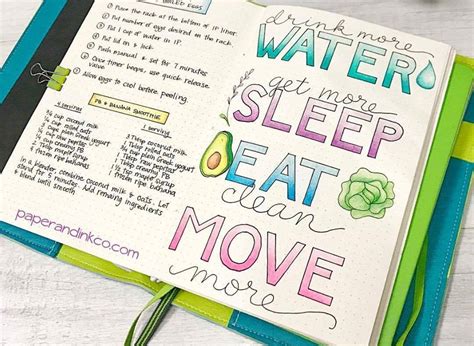 BOILED EGGS
① Put the rack at the bottom of IP liner
② Put number of eggs desired on the rack
③ Put 1 cup of water in IP
④ Put lid on & lock
⑤ Push manual & set for 7 minutes
⑥ Once timer beeps, use quick release valve
⑦ Allow eggs to cool before peeling
PB & BANANA SMOOTHIE
4 servings
cup coconut milk
cup rolled oats
cup plain Greek yogurt
cup raw pepitas
cup PB
cup maple syrup
frozen ripe bananas
1 serving
3 Tblsp coconut milk
Tblsp rolled oats
cup plain Greek yogurt
Tblsp raw pepitas
Tblsp PB
Tblsp maple syrup
frozen ripe banana
In a blender combine coconut milk & oats. Let
blend until smooth. Add remaining ingredients
paperandinkco.com
drink more
WATER
get more
SLEEP
EAT
clean
MOVE
more